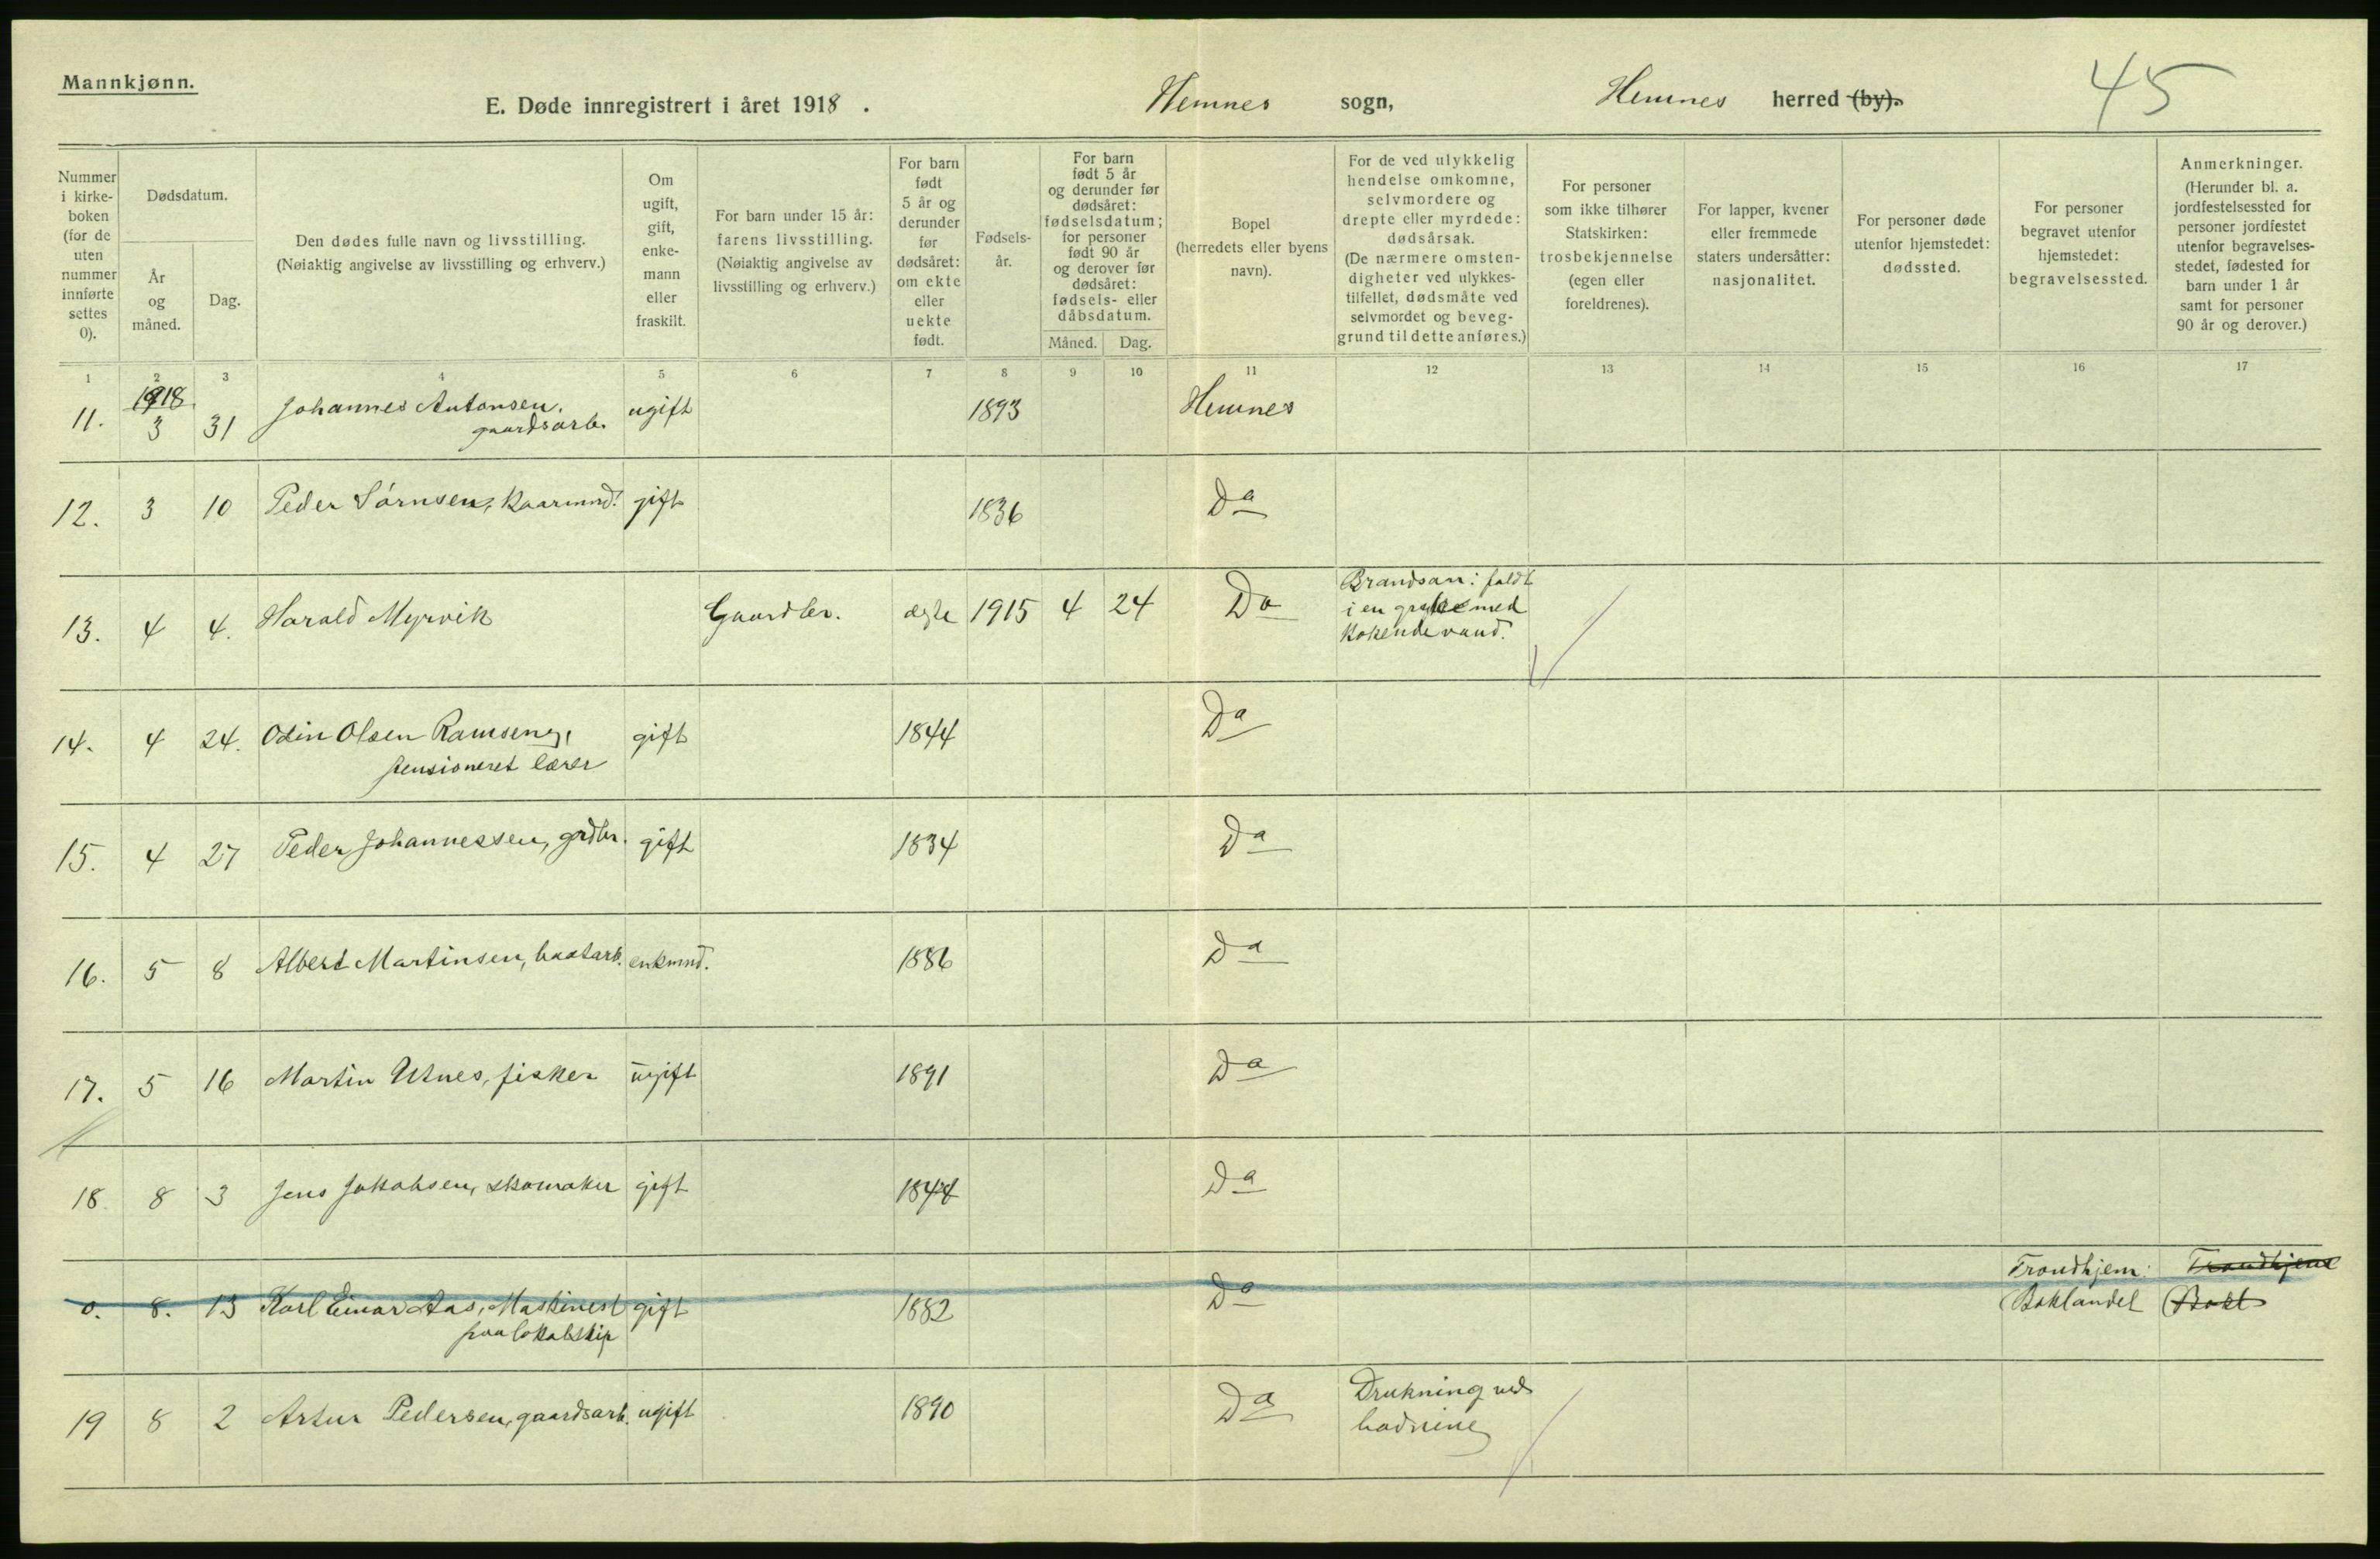 Mannkjønn.
E. Døde innregistrert i året 1918.
Hemnes sogn,
Hemnes herred (by).
45
Nummer i kirke-boken (for de uten nummer innførte settes 0).
Dødsdatum.
År og måned.
Dag.
Den dødes fulle navn og livsstilling.
(Nøiaktig angivelse av livsstilling og erhverv.)
Om ugift, gift, enke-mann eller fraskilt.
For barn under 15 år: farens livsstilling.
(Nøiaktig angivelse av livsstilling og erhverv.)
For barn født 5 år og derunder før dødsåret: om ekte eller uekte født.
Fødsels-år.
For barn født 5 år og derunder før dødsåret: fødselsdatum; for personer født 90 år og derover før dødsåret: fødsels- eller dåbsdatum.
Måned.
Dag.
Bopel (herredets eller byens navn).
For de ved ulykkelig hendelse omkomne, selvmordere og drepte eller myrdede: dødsårsak.
(De nærmere omsten-digheter ved ulykkes-tilfellet, dødsmåte ved selvmordet og beveg-grund til dette anføres.)
For personer som ikke tilhører Statskirken: trosbekjennelse (egen eller foreldrenes).
For lapper, kvener eller fremmede staters undersåtter: nasjonalitet.
For personer døde utenfor hjemstedet: dødssted.
For personer begravet utenfor hjemstedet: begravelsessted.
Anmerkninger.
(Herunder bl. a. jordfestelsessted for personer jordfestet utenfor begravelses-stedet, fødested for barn under 1 år samt for personer 90 år og derover.)
1 2 3 4 5 6 7 8 9 10 11 12 13 14 15 16 17
1918
11. 3 31 Johannes Antonsen, ugift 1893 Hemnes
gaardsarb.
12. 3 10 Peder Sørnsen, Kaarmnd. gift 1836 Da
13. 4 4. Harald Myrvik Gaardbr. ægte 1915 4 24 Da Brandsaar: faldt
i en gryte med
kokende vand.
14. 4 24. Odin Olsen Ramseng, gift 1844 Da
pensioneret lærer
15. 4 27 Peder Johannessen, grdbr. gift 1834 Da
16. 5 8 Albert Martinsen, baatarb. enkmnd. 1886 Da
17. 5 16 Martin Utnes, fisker ugift 1891 Da
18 8 3 Jens Jakobsen, skomaker gift 1844 Da
0. 8. 13 Karl Einar Aas, Maskinest gift 1882 Da Trondhjem: Trondhjem
paa lokalskip Baklandet Bakl
19 8 2 Artur Pedersen, gaardsarb. ugift 1890 Da Drukning ved
badning